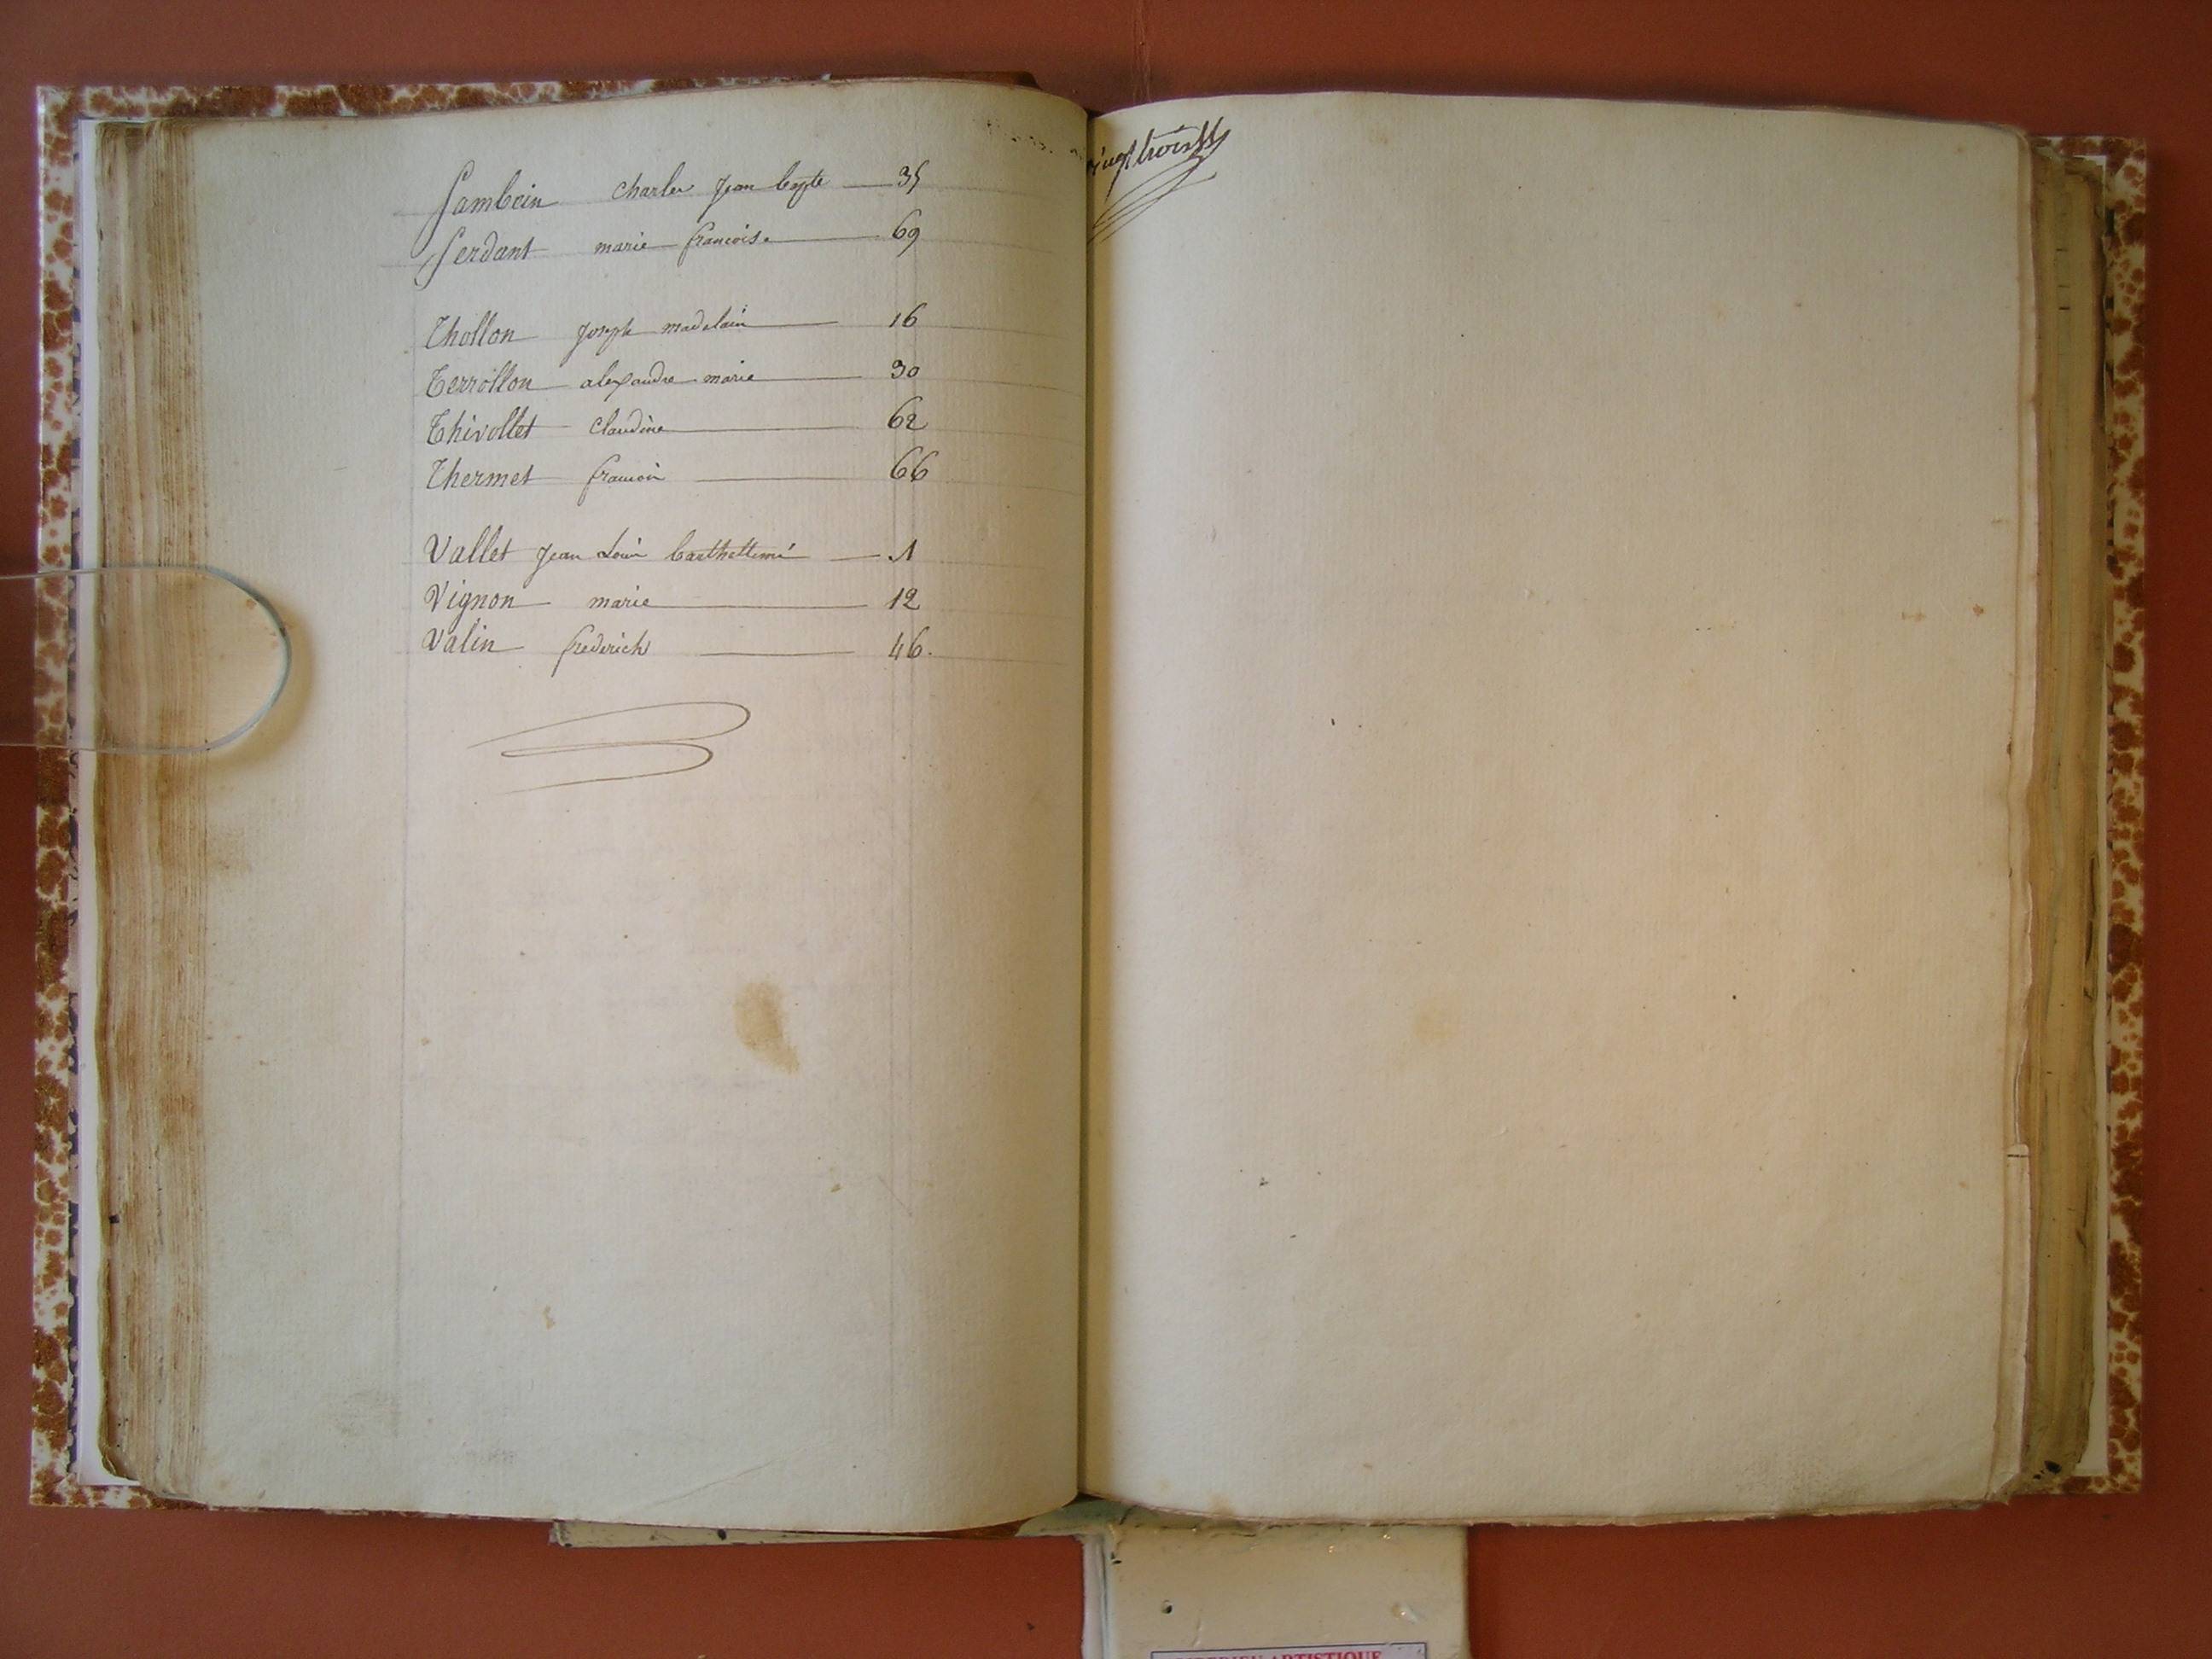 Sambein charles jean bapte 35
Serdant marie francoise 69
Thollon joseph madelain 16
Terrollon alexandre marie 30
Thivollet claudine 62
Thermet francois 66
Vallet jean Louis barthellemi 1
Vignon marie 12
Valin frederich 46.
vingt trois